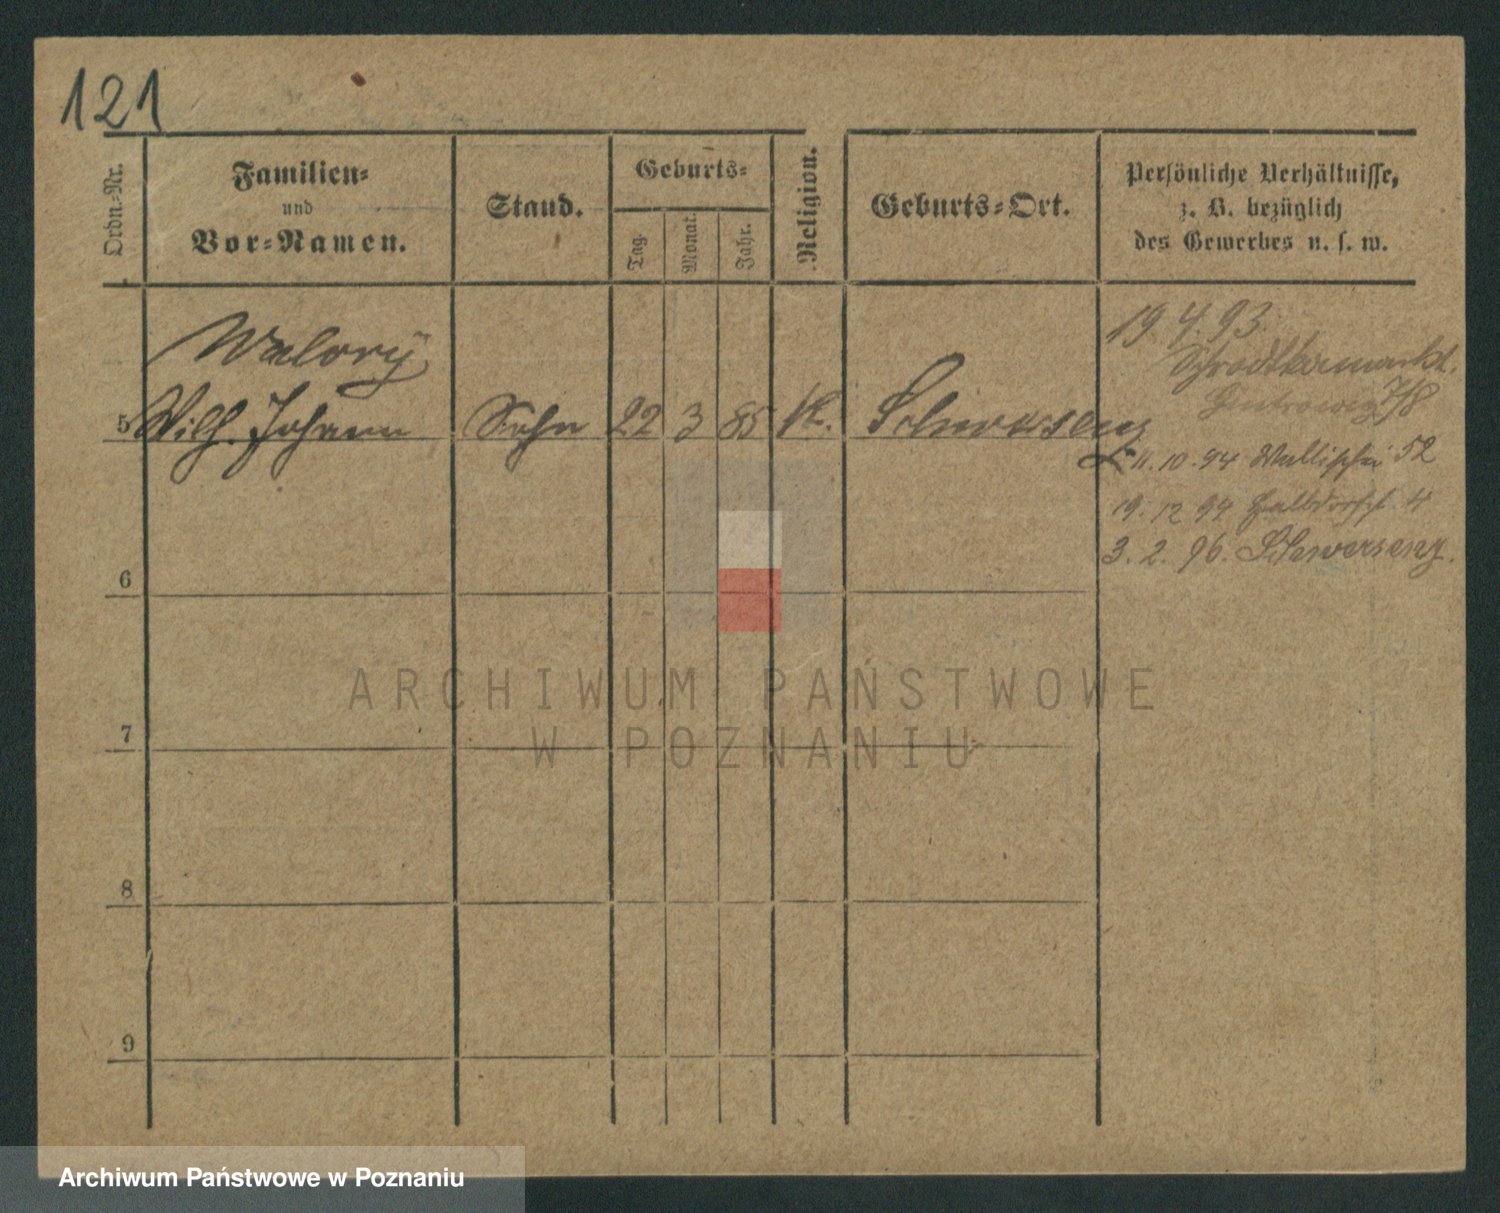 121
Ordn.-Nr.
Familien-
und
Vor-Namen.
Stand.
Geburts-
Tag.
Monat.
Jahr.
Religion.
Geburts-Ort.
Persönliche Verhältnisse,
z. B. bezüglich
des Gewerbes u. s. w.
Walory
5 Wilh. Johann Sohn 22 3 85 k. Schwersenz
19.4.93.
Schrodkamarkt.
7/8
11.10.94 Wallischei 52
19.12 94 4
3.2.96. Schwersenz.
6
7
8
9
ARCHIWUM PAŃSTWOWE
W POZNANIU
Archiwum Państwowe w Poznaniu